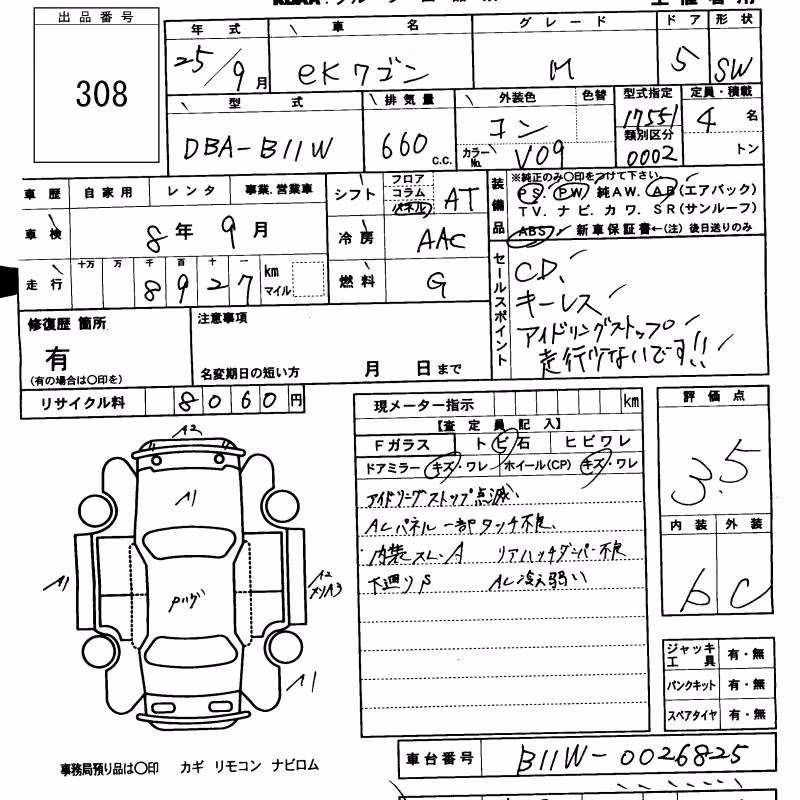 出品番号
308
年式 車名 グレード ドア 形状
25/9月 eKワゴン M 5 SW
型式 排気量 外装色 色替 型式指定 定員・積載
DBA-B11W 660 C.C. コン カラーNo. V09 17551 類別区分 0002 4名 トン
車歴 自家用 レンタ 事業.営業車
シフト フロア コラム パネル AT
装備品
※純正のみ〇印をつけて下さい。
PS. PW. 純AW. AB(エアバック)
TV. ナビ. カワ. SR(サンルーフ)
ABS 新車保証書←(注) 後日送りのみ
車検 8年 9月
冷房 AAC
走行 十万 万 千 百 十 一
8 9 2 7 km マイル
燃料 G
セールスポイント
CD.
キーレス
アイドリングストップ
走行少ないです!!
修復歴 箇所
有
(有の場合は〇印を)
注意事項
名変期日の短い方 月 日まで
リサイクル料 8 0 6 0 円
現メーター指示 km
【査定員記入】
Fガラス トビ石 ヒビワレ
ドアミラー キズ・ワレ ホイール(CP) キズ・ワレ
アイドリングストップ点滅
ACパネル一部タッチ不良、
内装スレ.A リアハッチダンパー不良
下廻りS AC冷え弱い
評価点
3.5
内装 外装
b C
A2
A1
A1
A2
A1
ジャッキ工具 有・無
パンクキット 有・無
スペアタイヤ 有・無
車台番号 B11W-0026825
事務局預り品は〇印 カギ リモコン ナビロム